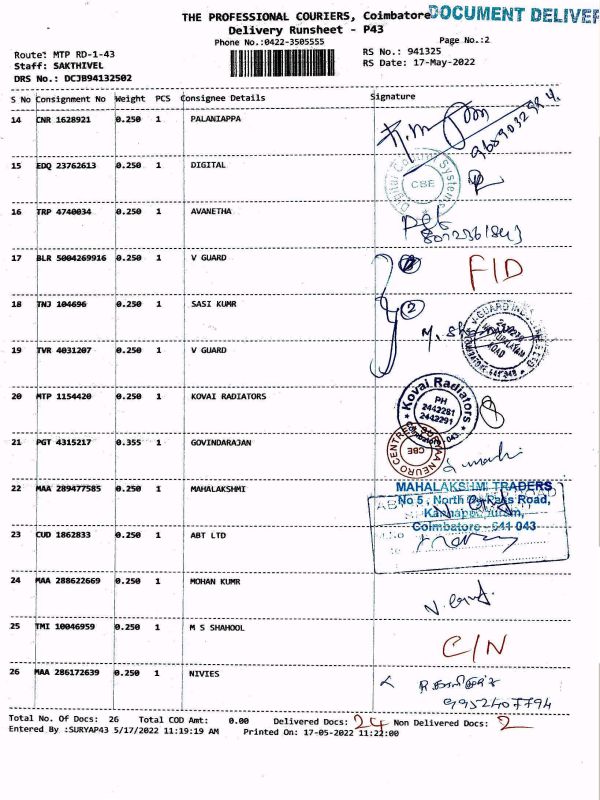 THE PROFESSIONAL COURIERS, Coimbatore DOCUMENT DELIVER
Delivery Runsheet - P43
Phone No.:0422-3505555
Page No.:2
Route: MTP RD-1-43
RS No.: 941325
Staff: SAKTHIVEL
RS Date: 17-May-2022
DRS No.: DCJB94132502
S No Consignment No Weight PCS Consignee Details Signature
14 CNR 1628921 0.250 1 PALANIAPPA
15 EDQ 23762613 0.250 1 DIGITAL
Digital Control Systems CBE
16 TRP 4740034 0.250 1 AVANETHA
17 BLR 5004269916 0.250 1 V GUARD F/D
18 TNJ 104696 0.250 1 SASI KUMR 2
19 TVR 4031207 0.250 1 V GUARD
20 MTP 1154420 0.250 1 KOVAI RADIATORS
Kovai Radiators
PH
2443281
2443291
Coimbatore - 043
21 PGT 4315217 0.355 1 GOVINDARAJAN
NEURO CENTRE CBE
22 MAA 289477585 0.250 1 MAHALAKSHMI
MAHALAKSHMI TRADERS
No 5, North Road,
Coimbatore - 641 043
23 CUD 1862833 0.250 1 ABT LTD
24 MAA 288622669 0.250 1 MOHAN KUMR
25 TMI 10046959 0.250 1 M S SHAHOOL C/N
26 MAA 286172639 0.250 1 NIVIES
9952407794
Total No. Of Docs: 26 Total COD Amt: 0.00 Delivered Docs: 24 Non Delivered Docs: 2
Entered By :SURYAP43 5/17/2022 11:19:19 AM Printed On: 17-05-2022 11:22:00